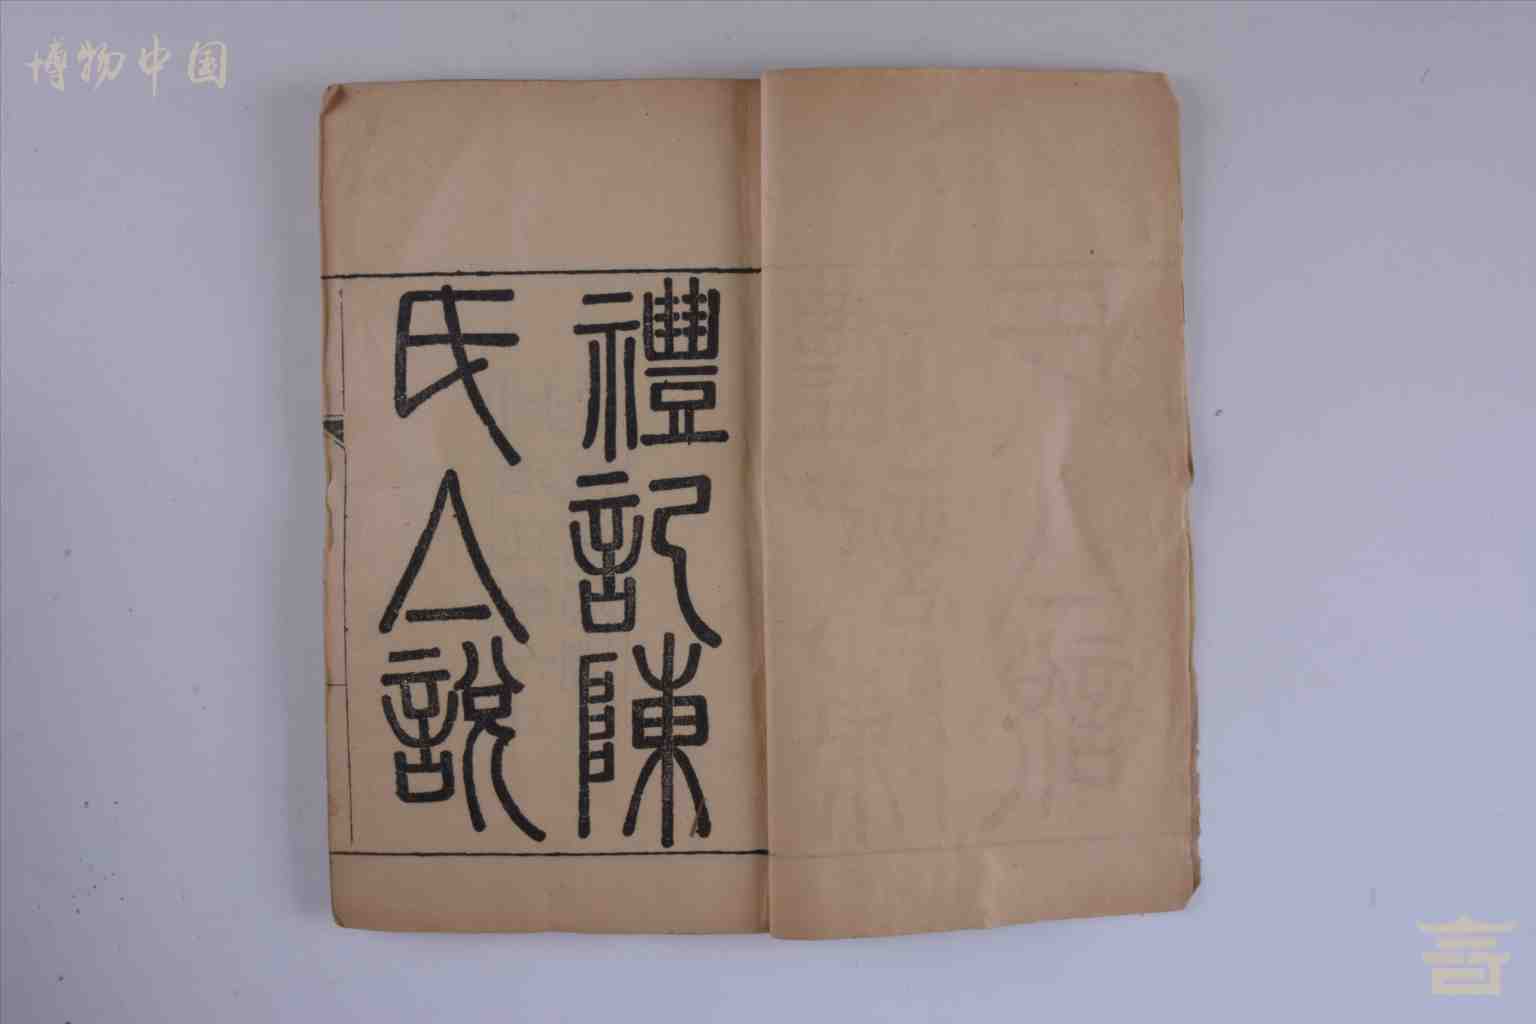 博物中国
禮記陳
氏亼說